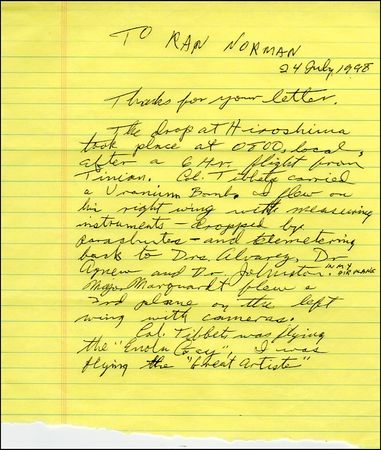 TO RAN NORMAN
24 July 1998
Thanks for your letter.
The drop at Hiroshima
took place at 0800, local,
after a 6 Hr. flight from
Tinian. Col. Tibbets carried
a Uranium Bomb. I flew on
his right wing with measuring
instruments - dropped by
parachutes - and telemetering
back to Drs. Alvarez, Dr
Agnew and Dr. Johnston. IN MY AIRPLANE
Major Marquardt flew a
3rd plane on the left
wing with cameras.
Col. Tibbets was flying
the "Enola Gay", I was
flying the "Great Artiste"